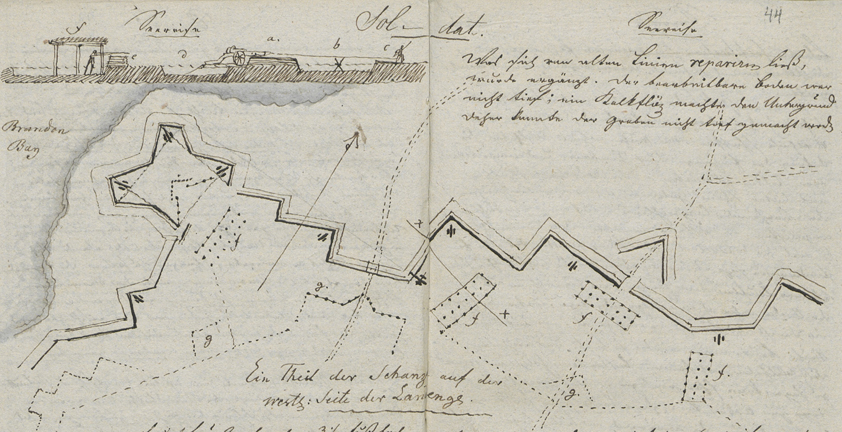 44
Seereise
Sol- dat.
Seereise
f
e
d
a.
b
c
Was sich von alten Linien repariren ließ,
wurde ergänzt. Der bearbeitbare Boden war
nicht tief; ein Kalkflöz machte den Untergrund
daher konnte der Graben nicht tief gemacht werden
Brandon
Bay
x
f
g
g.
f
x
f
f.
g.
Ein Theil der Schanz auf der
westl: Seite der Landenge.